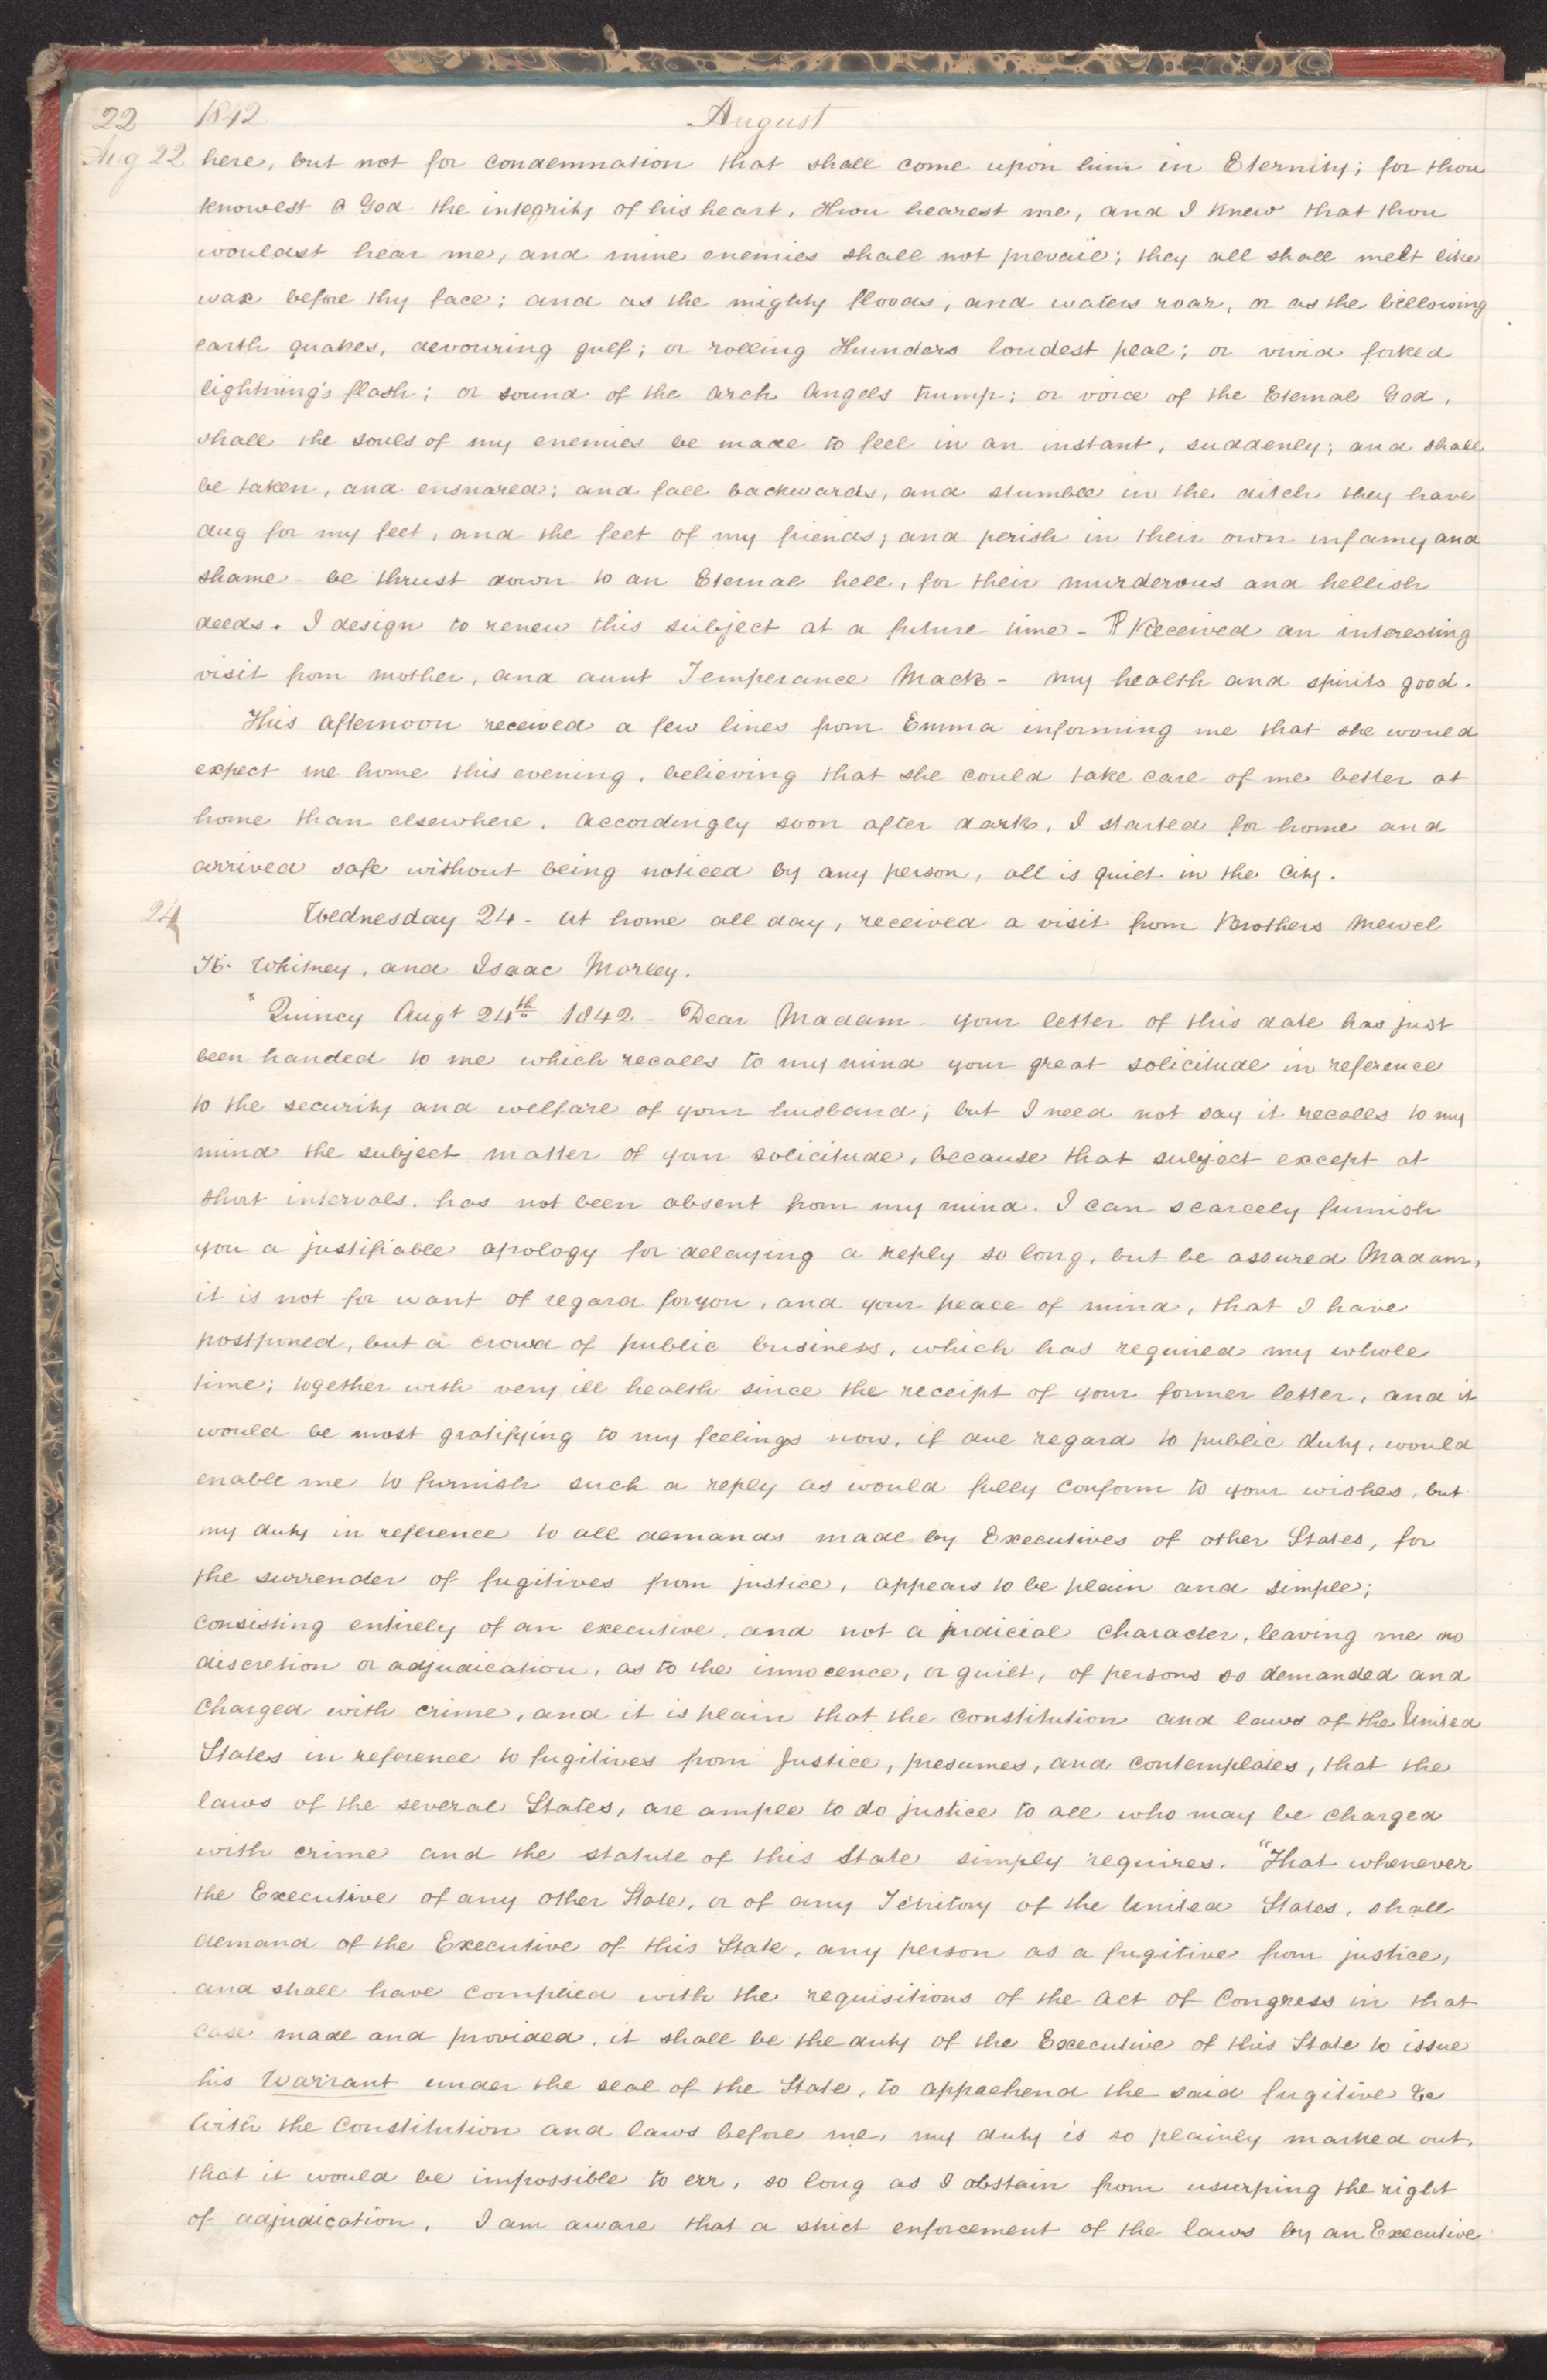 22 1842 August
Aug 22 here, but not for condemnation that shall come upon him in Eternity; for thou
knowest O God the integrity of his heart, thou hearest me, and I knew that thou
wouldst hear me, and mine enemies shall not prevail; they all shall melt like
wax before thy face; and as the mighty floods, and waters roar, or as the billowing
earth quakes, devouring gulf; or rolling thunders loudest peal; or vivid forked
lightning's flash; or sound of the Arch Angels trump; or voice of the Eternal God,
shall the souls of my enemies be made to feel in an instant, suddenly; and shall
be taken, and ensnared; and fall backwards, and stumble in the ditch they have
dug for my feet, and the feet of my friends; and perish in their own infamy and
shame - be thrust down to an Eternal hell, for their murderous and hellish
deeds. I design to renew this subject at a future time - ¶ Received an interesting
visit from mother, and aunt Temperance Mack - my health and spirits good.
This afternoon received a few lines from Emma informing me that she would
expect me home this evening, believing that she could take care of me better at
home than elsewhere, accordingly soon after dark, I started for home and
arrived safe without being noticed by any person, all is quiet in the City.
24 Wednesday 24 - At home all day, received a visit from Brothers Newel
K. Whitney, and Isaac Morley.
"Quincy Augt 24th 1842 - Dear Madam - your letter of this date has just
been handed to me which recalls to my mind your great solicitude in reference
to the security and welfare of your husband; but I need not say it recalls to my
mind the subject matter of your solicitude, because that subject except at
short intervals, has not been absent from my mind. I can scarcely furnish
you a justifiable apology for delaying a reply so long, but be assured Madam,
it is not for want of regard for you, and your peace of mind, that I have
postponed, but a crowd of public business, which has required my whole
time; together with very ill health since the receipt of your former letter, and it
would be most gratifying to my feelings now, if due regard to public duty, would
enable me to furnish such a reply as would fully conform to your wishes, but
my duty in reference to all demands made by Executives of other States, for
the surrender of fugitives from justice, appears to be plain and simple;
consisting entirely of an executive, and not a judicial character, leaving me no
discretion or adjudication, as to the innocence, or guilt, of persons so demanded and
charged with crime, and it is plain that the constitution and laws of the United
States in reference to fugitives from Justice, presumes, and contemplates, that the
laws of the several States, are ample to do justice to all who may be charged
with crime and the statute of this State simply requires. "That whenever
the Executive of any other State, or of any Territory of the United States, shall
demand of the Executive of this State, any person as a fugitive from justice,
and shall have complied with the requisitions of the Act of Congress in that
case made and provided, it shall be the duty of the Executive of this State to issue
his Warrant under the seal of the State, to apprehend the said fugitive &c
With the Constitution and laws before me, my duty is so plainly marked out,
that it would be impossible to err, so long as I abstain from usurping the right
of adjudication. I am aware that a strict enforcement of the laws by an Executive